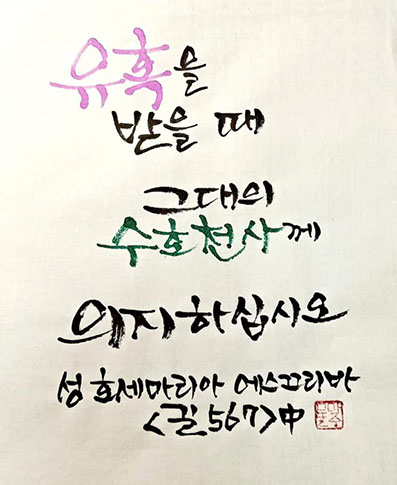 유혹을
받을 때
그대의
수호천사께
의지하십시오
성 호세마리아 에스끄리바
<길 567> 中